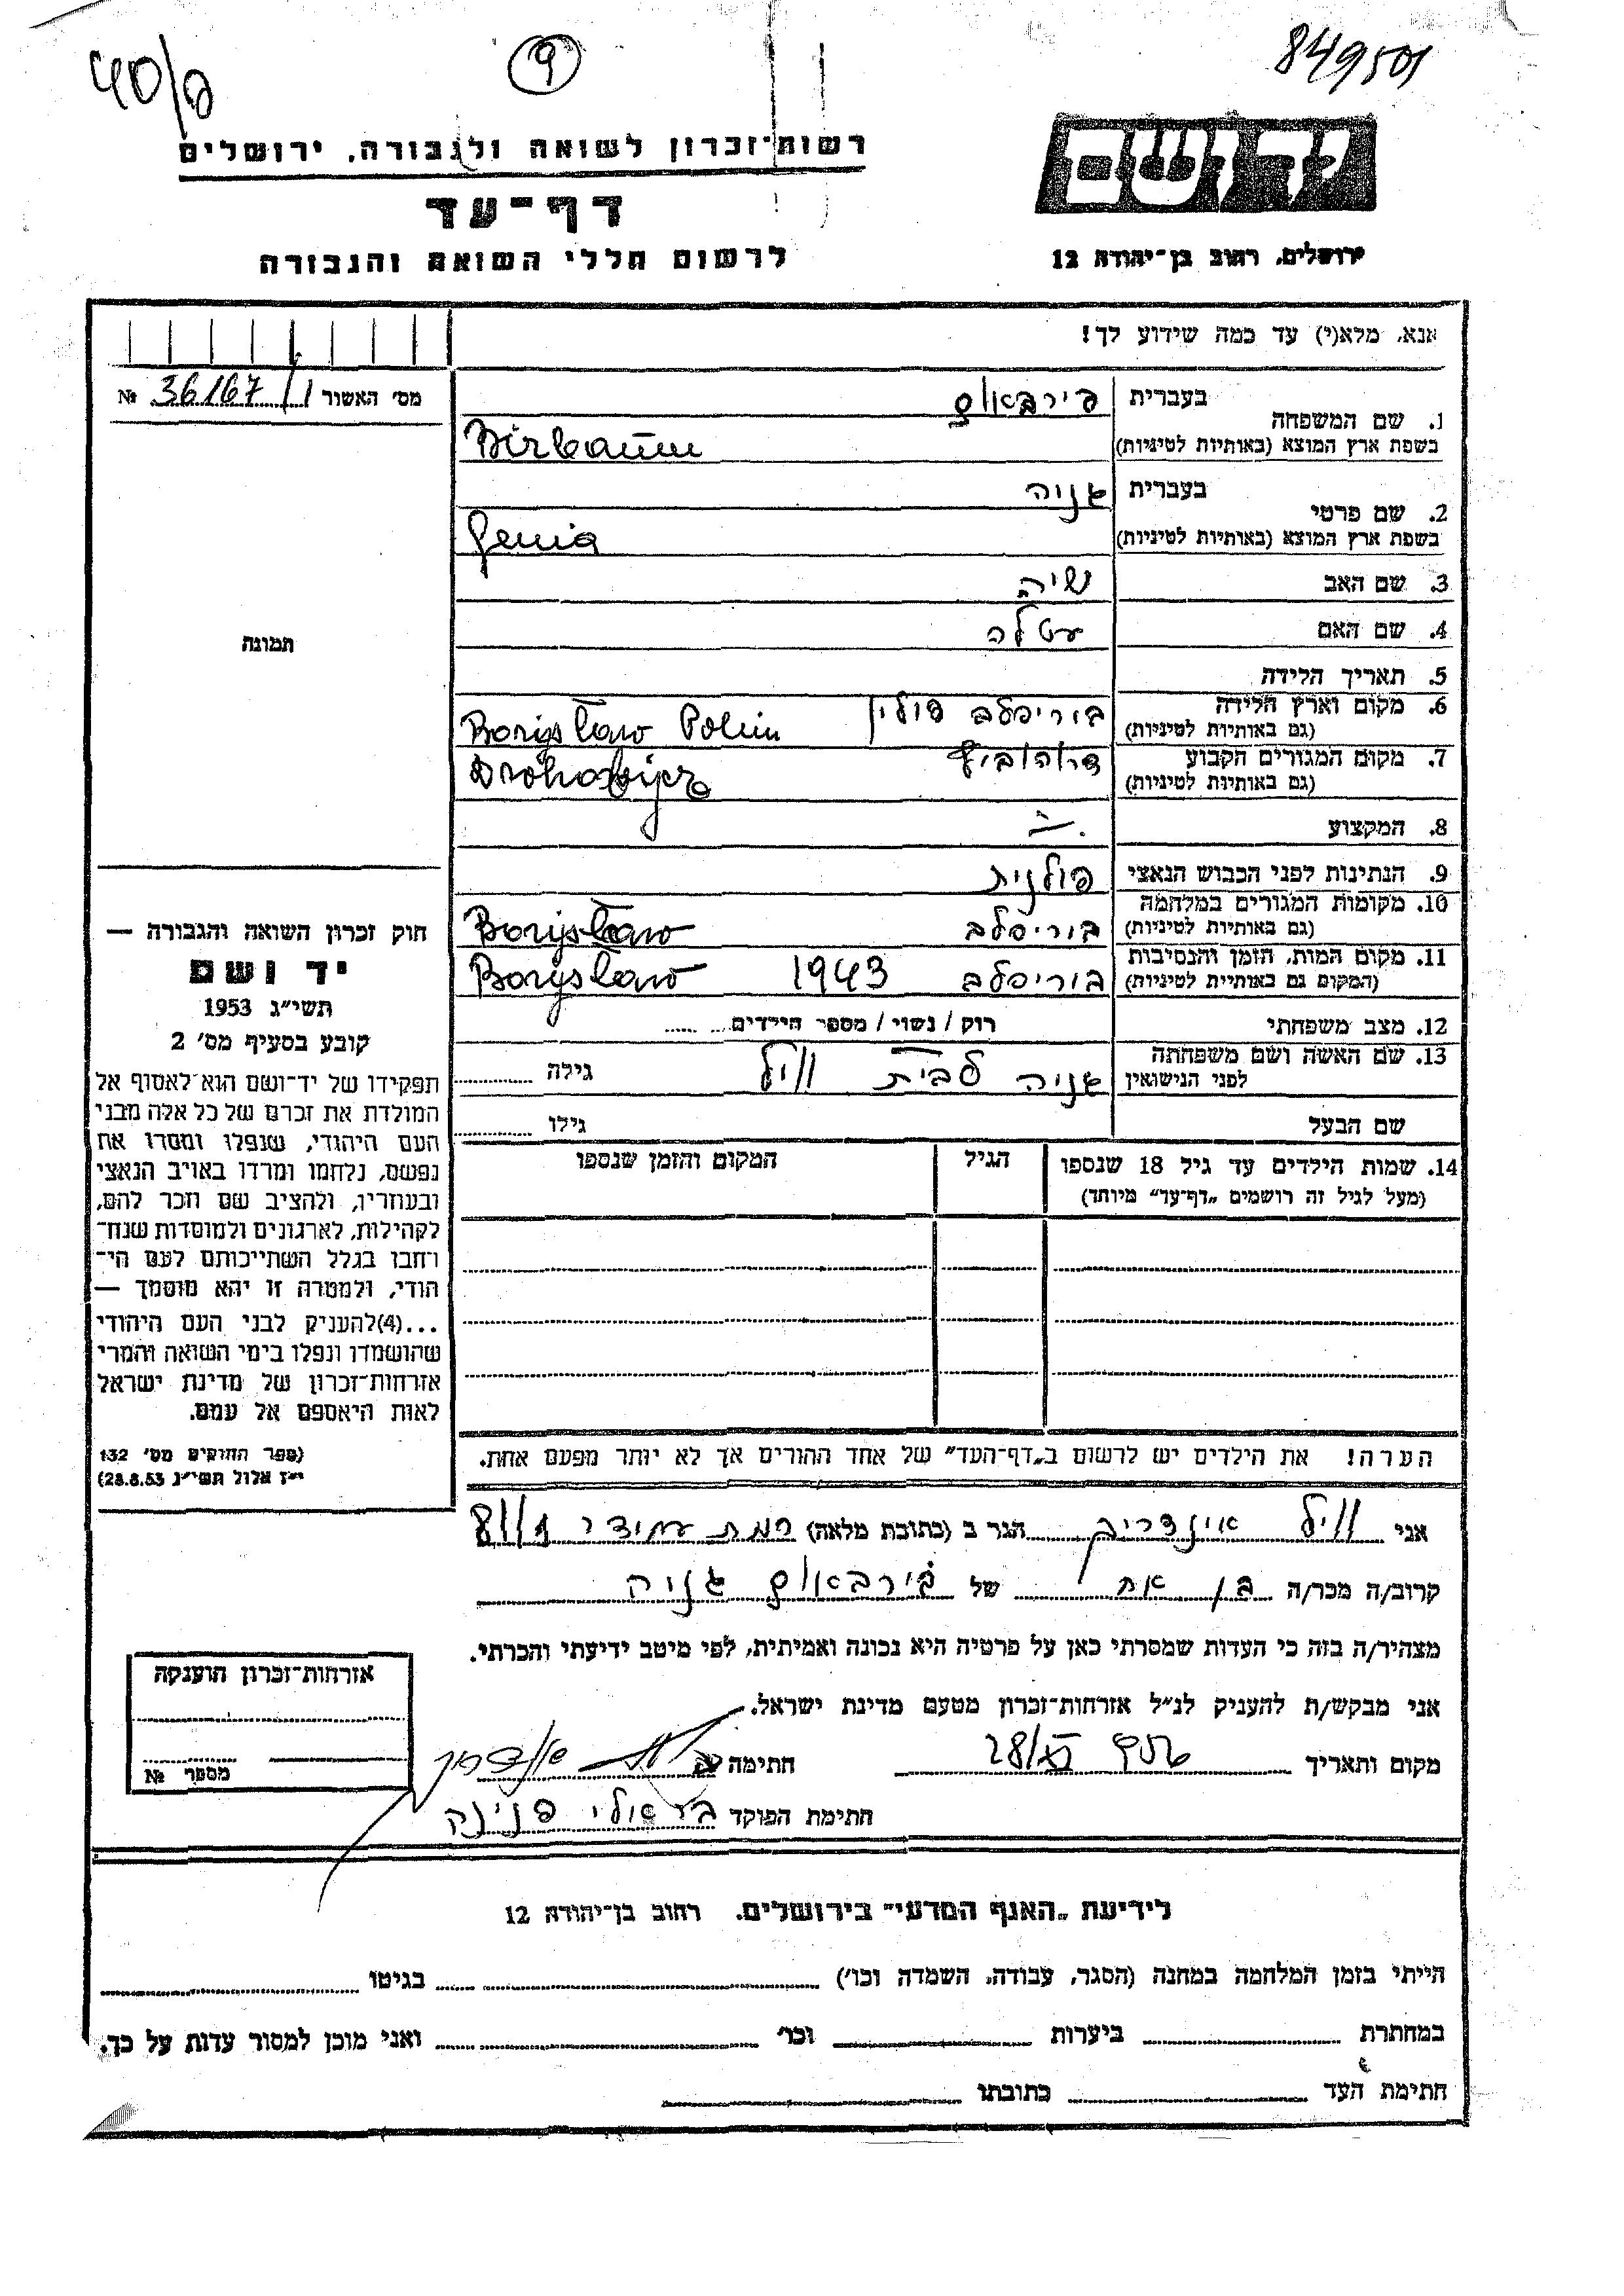 40/פ
9
849501
רשות־זכרון לשואה ולגבורה, ירושלים
יד ושם
דף־עד
לרשום חללי השואה והגבורה
ירושלים, רחוב בן־יהודה 12
אנא, מלא(י) עד כמה שידוע לך!
מס׳ האשור 36167/1 №
1. שם המשפחה
בעברית בירבאום
בשפת ארץ המוצא (באותיות לטיניות) Birbaum
2. שם פרטי
בעברית גניה
בשפת ארץ המוצא (באותיות לטיניות) Genia
3. שם האב שיה
4. שם האם עטלה
5. תאריך הלידה
6. מקום וארץ הלידה
(גם באותיות לטיניות) בוריסלב פולין Borysław Polin
7. מקום המגורים הקבוע
(גם באותיות לטיניות) דרוהוביץ Drohobycz
8. המקצוע
9. הנתינות לפני הכבוש הנאצי פולנית
10. מקומות המגורים במלחמה
(גם באותיות לטיניות) בוריסלב Borysław
11. מקום המות, הזמן והנסיבות
(המקום גם באותיות לטיניות) בוריסלב 1943 Borysław
12. מצב משפחתי רוק / נשוי / מספר הילדים
13. שם האשה ושם משפחתה
לפני הנישואין גניה לבית וויל גילה
שם הבעל גילו
14. שמות הילדים עד גיל 18 שנספו
(מעל לגיל זה רושמים „דף־עד״ מיוחד)
הגיל
המקום והזמן שנספו
תמונה
חוק זכרון השואה והגבורה —
יד ושם
תשי״ג 1953
קובע בסעיף מס׳ 2
תפקידו של יד־ושם הוא לאסוף אל
המולדת את זכרם של כל אלה מבני
העם היהודי, שנפלו ומסרו את
נפשם, נלחמו ומרדו באויב הנאצי
ובעוזריו, ולהציב שם וזכר להם,
לקהילות, לארגונים ולמוסדות שנח־
רבו בגלל השתייכותם לעם הי־
הודי, ולמטרה זו יהא מוסמך —
...(4)להעניק לבני העם היהודי
שהושמדו ונפלו בימי השואה והמרי
אזרחות־זכרון של מדינת ישראל
לאות היאספם אל עמם.
(ספר החוקים מס׳ 132
י״ז אלול תשי״ג 28.8.53)
הערה! את הילדים יש לרשום ב„דף־העד״ של אחד ההורים אך לא יותר מפעם אחת.
אני וויל הגר ב (כתובת מלאה) רמת עמידר
קרוב/ה מכר/ה בן אח של בירבאום גניה
מצהיר/ה בזה כי העדות שמסרתי כאן על פרטיה היא נכונה ואמיתית, לפי מיטב ידיעתי והכרתי.
אני מבקש/ת להעניק לנ״ל אזרחות־זכרון מטעם מדינת ישראל.
מקום ותאריך חתימה
חתימת הפוקד פנינה
אזרחות־זכרון הוענקה
מספר №
לידיעת „האגף המדעי״ בירושלים. רחוב בן־יהודה 12
הייתי בזמן המלחמה במחנה (הסגר, עבודה, השמדה וכו׳) בגיטו
במחתרת ביערות וכו׳ ואני מוכן למסור עדות על כך.
חתימת העד כתובתו